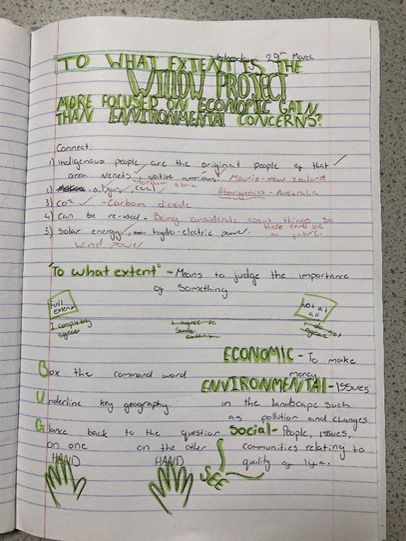 Wednesday 29th March
TO WHAT EXTENT IS THE
WILLOW PROJECT
MORE FOCUSED ON ECONOMIC GAIN
THAN ENVIRONMENTAL CONCERNS?
Connect:
1) Indigenous people are the original people of that
area Nenets, native americans Maoris - New Zealand
2) oil, gas, coal Aborigenies - Australia
3) CO² - Carbon dioxide
4) Can be re-used - Being considerate about things so
there could be a future
5) Solar energy, hydro-electric power.
Wind power
"To what extent" - Means to judge the importance
of Something
Full extent Not at all
I completely agree I agree to some extent I do not agree
ECONOMIC - To make
Box the command word money
ENVIRONMENTAL - Issues
Underline key geography in the landscape such
as pollution and changes
Glance back to the question Social - People, issues,
on one on the other communities relating to
HAND HAND quality of life.
SEE